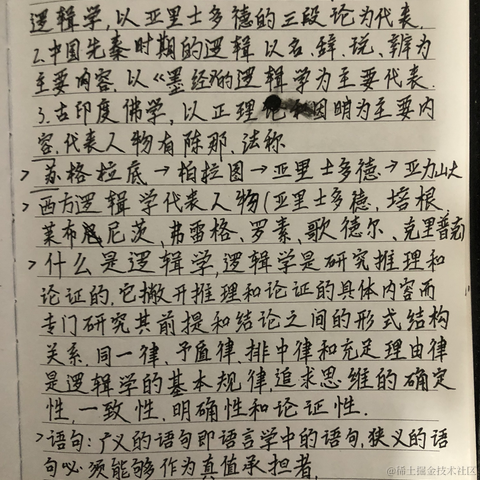 逻辑学,以亚里士多德的三段论为代表.
2.中国先秦时期的逻辑以名、辞、说、辨为
主要内容,以《墨经》的逻辑学为主要代表.
3.古印度佛学,以正理论和因明为主要内
容.代表人物有陈那、法称
> 苏格拉底→柏拉图→亚里士多德→亚力山大
> 西方逻辑学代表人物(亚里士多德、培根、
莱布尼茨、弗雷格、罗素、歌德尔、克里普克
> 什么是逻辑学,逻辑学是研究推理和
论证的,它撇开推理和论证的具体内容而
专门研究其前提和结论之间的形式结构
关系.同一律、矛盾律、排中律和充足理由律
是逻辑学的基本规律,追求思维的确定
性,一致性、明确性和论证性.
>语句:广义的语句即语言学中的语句,狭义的语
句必须能够作为真值承担者,
@稀土掘金技术社区